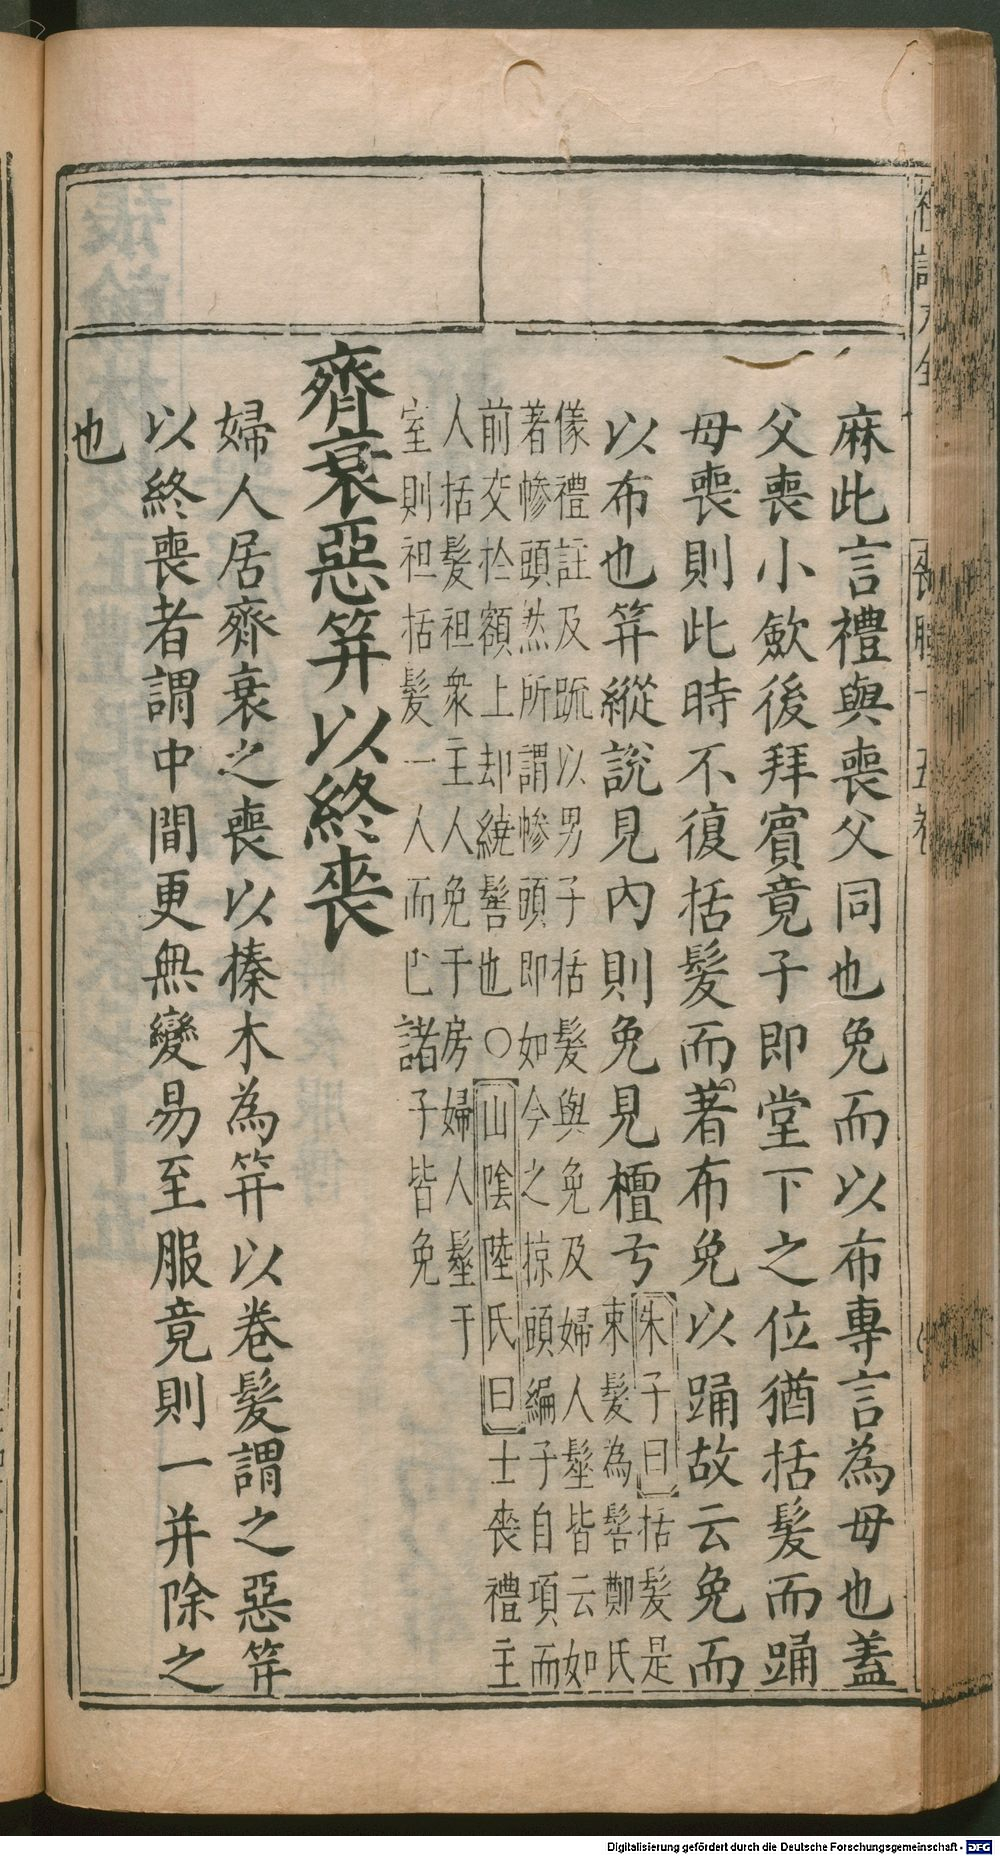 麻此言禮與喪父同也免而以布專言為母也蓋
父喪小斂後拜賓竟子即堂下之位猶括髮而踊
母喪則此時不復括髮而著布免以踊故云免而
以布也笄縰說見內則免見檀弓
朱子曰括髮是
束髮為髻鄭氏
儀禮註及疏以男子括髮與免及婦人髽皆云如
著幓頭然所謂幓頭即如今之掠頭編子自項而
前交於額上却繞髻也○山陰陸氏曰士喪禮主
人括髮袒衆主人免于房婦人髽于
室則袒括髮一人而已諸子皆免
齊衰惡笄以終喪
婦人居齊衰之喪以榛木為笄以卷髮謂之惡笄
以終喪者謂中間更無變易至服竟則一并除之
也
喪服十五卷
Digitalisierung gefördert durch die Deutsche Forschungsgemeinschaft - DFG